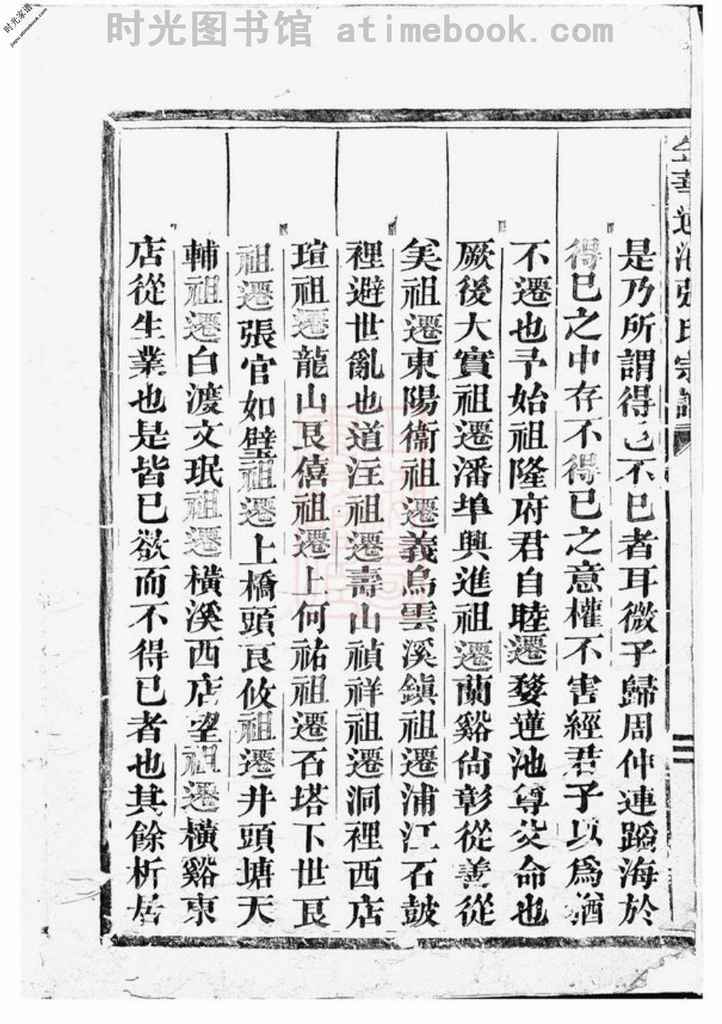 时光图书馆 atimebook.com
时光家谱
jiapu.atimebook.com
金華蓮池張氏宗譜
是乃所謂得已不已者耳微子歸周仲連蹈海於
得已之中存不得已之意權不害經君子以為猶
不遷也予始祖隆府君自睦遷婺蓮池尊父命也
厥後大實祖遷潘埠興進祖遷蘭谿尙彰從善從
矣祖遷東陽衞祖遷義烏雲溪鎭祖遷浦江石鼓
裡避世亂也道汪祖遷壽山禎祥祖遷洞裡西店
瑄祖遷龍山艮僖祖遷上何祐祖遷石塔下世艮
祖遷張官如璧祖遷上橋頭艮攸祖遷井頭塘天
輔祖遷白渡文珉祖遷橫溪西店望祖遷橫谿東
店從生業也是皆已欲而不得已者也其餘析居